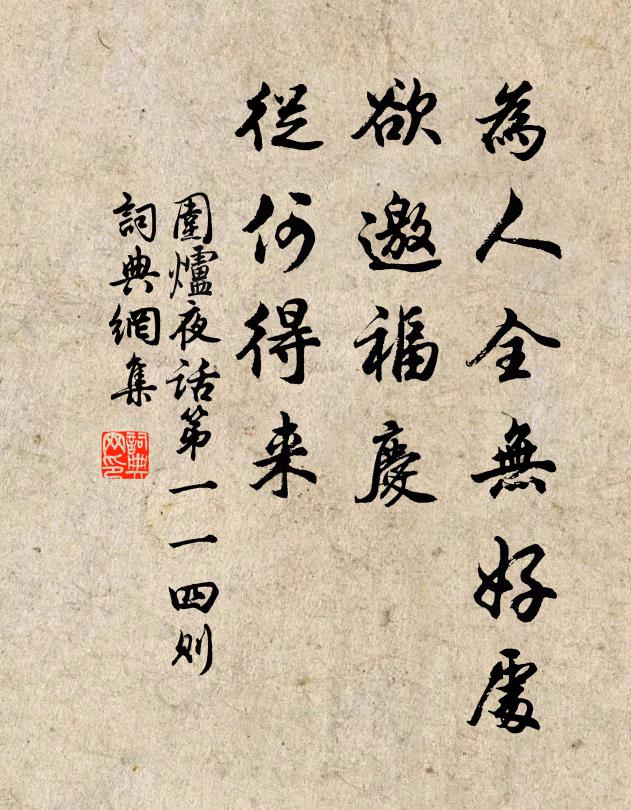 為人全無好處
欲邀福慶
從何得来
圍爐夜话第一一四则
詞典網集
詞典
网印